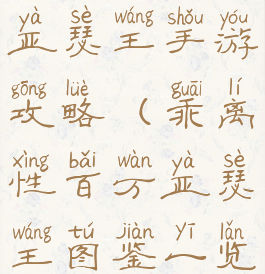 yà sè wáng shǒu yóu
亚瑟王手游
gōng lüè guāi lí
攻略（乖离
xìng bǎi wàn yà sè
性百万亚瑟
wáng tú jiàn yī lǎn
王图鉴一览